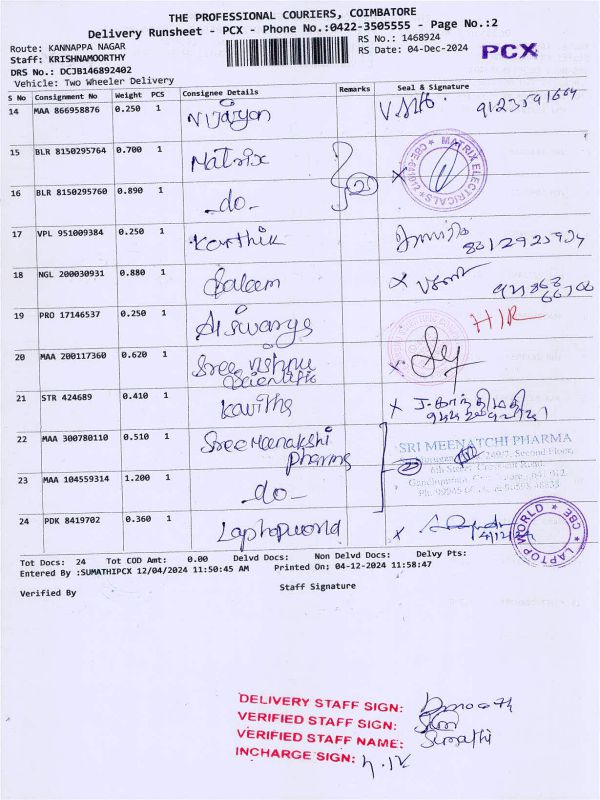 THE PROFESSIONAL COURIERS, COIMBATORE
Delivery Runsheet - PCX - Phone No.:0422-3505555 - Page No.:2
Route: KANNAPPA NAGAR
RS No.: 1468924
Staff: KRISHNAMOORTHY
RS Date: 04-Dec-2024
PCX
DRS No.: DCJB146892402
Vehicle: Two Wheeler Delivery
S No Consignment No Weight PCS Consignee Details Remarks Seal & Signature
14 MAA 866958876 0.250 1
15 BLR 8150295764 0.700 1 Matrix
MATRIX ELECTRICALS
16 BLR 8150295760 0.890 1 -do-
17 VPL 951009384 0.250 1 Karthik
18 NGL 200030931 0.880 1 Saleem
19 PRO 17146537 0.250 1 Aiswarya
H/R
20 MAA 200117360 0.620 1 Sree Vishnu
Scientific
21 STR 424689 0.410 1 Kavitha
22 MAA 300780110 0.510 1 Sree Meenakshi
Pharma
SRI MEENATCHI PHARMA
23 MAA 104559314 1.200 1 -do-
24 PDK 8419702 0.360 1 Laptopworld
4/12/24
LAPTOP WORLD * CBE *
Tot Docs: 24 Tot COD Amt: 0.00 Delvd Docs: Non Delvd Docs: Delvy Pts:
Entered By :SUMATHIPCX 12/04/2024 11:50:45 AM Printed On: 04-12-2024 11:58:47
Verified By Staff Signature
DELIVERY STAFF SIGN:
VERIFIED STAFF SIGN:
VERIFIED STAFF NAME: Sumathi
INCHARGE SIGN: